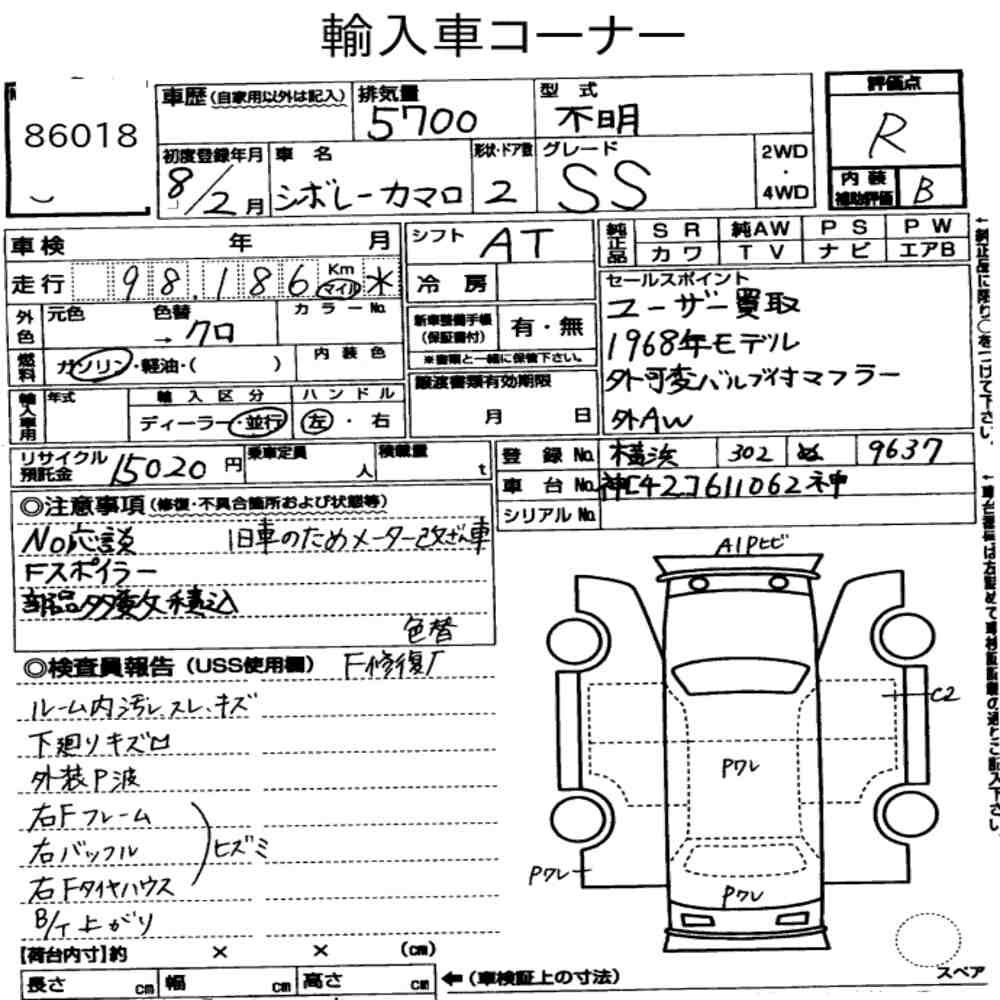 輸入車コーナー
86018
車歴 (自家用以外は記入)
排気量
5700
型式
不明
評価点
R
内装補助評価
B
初度登録年月
8/2月
車名
シボレーカマロ
形状・ドア数
2
グレード
SS
2WD
・
4WD
車検 年 月
走行 98,186 Km マイル *
外色 元色 色替 → クロ カラーNo.
燃料 ガソリン・軽油・( ) 内装色
輸入車用 年式 輸入区分 ハンドル
ディーラー・並行 左・右
リサイクル預託金 15020円 乗車定員 人 積載量 t
シフト AT
冷房
新車整備手帳 (保証書付) 有・無
※書類と一緒に保管下さい。
譲渡書類有効期限
月 日
純正品 SR 純AW PS PW
カワ TV ナビ エアB
セールスポイント
ユーザー買取
1968年モデル
外可変バルブ付マフラー
外AW
←純正品に限り○をつけて下さい。
登録No. 横浜 302 ぬ 9637
車台No. 神[42]611062神
シリアルNo.
◎注意事項 (修復・不具合箇所および状態等)
No応談 旧車のためメーター改ざん車
Fスポイラー
部品多数積込
色替
◎検査員報告 (USS使用欄) F修復歴
ルーム内汚レ.スレ.キズ
下廻りキズ
外装P波
右Fフレーム
右バッフル
右Fタイヤハウス
ヒズミ
B/T上がり
A1Pヒビ
C2
Pワレ
Pワレ
Pワレ
スペア
【荷台内寸】約 × × (cm)
長さ cm 幅 cm 高さ cm ← (車検証上の寸法)